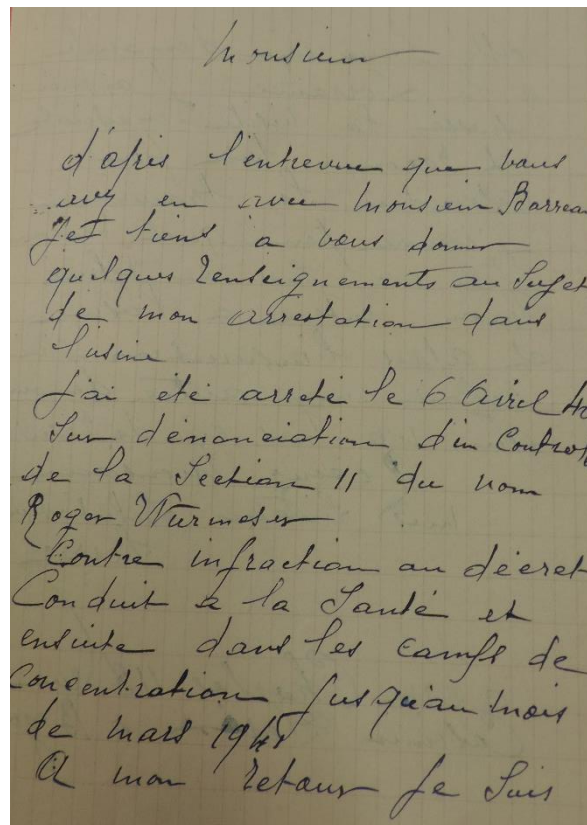 Monsieur
d'après l'entrevue que vous
avez eu avec Monsieur Barreau
Je tiens a vous donner
quelques renseignements au Sujet
de mon arrestation dans
l'usine
J'ai été arreté le 6 Avril 40
Sur dénonciation d'un Control
de la Section 11 du nom
Roger Wurmeser
Contre infraction au décret
Conduit a la Santé et
ensuite dans les camps de
Concentration jusqu'au mois
de mars 1941
A mon retour je Suis